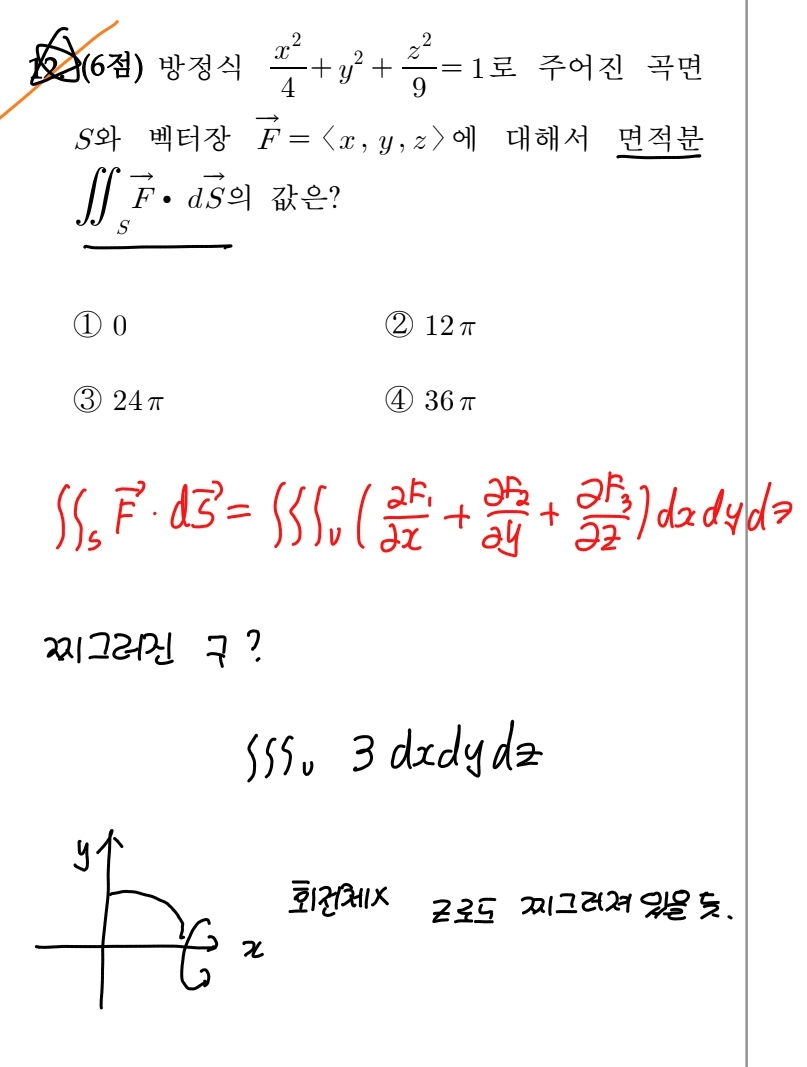 12. (6점) 방정식 x²/4 + y² + z²/9 = 1로 주어진 곡면
S와 벡터장 F⃗ = ⟨x, y, z⟩에 대해서 면적분
∬_S F⃗ • dS⃗의 값은?
① 0 ② 12π
③ 24π ④ 36π
∬_S F⃗ · dS⃗ = ∭_V (∂F₁/∂x + ∂F₂/∂y + ∂F₃/∂z) dxdydz
찌그러진 구?
∭_V 3 dxdydz
y
회전체X z로도 찌그러져 있을 듯.
x